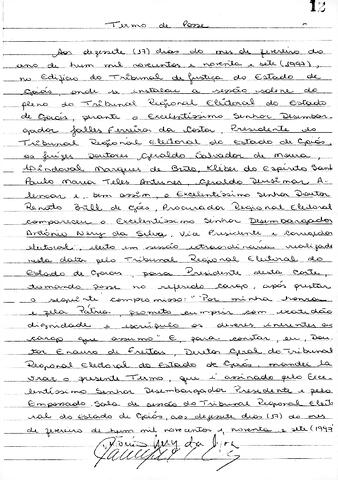 12
Termo de Posse
Aos dezesete (17) dias do mes de fevereiro do
ano de hum mil novecentos e noventa e sete (1997),
no Edifício do Tribunal de Justiça do Estado de
Goiás, onde se instalou a sessão solene do
pleno do Tribunal Regional Eleitoral do Estado
de Goiás, perante o Excelentíssimo Senhor Desembar-
gador Jalles Ferreira da Costa, Presidente do
Tribunal Regional Eleitoral do Estado de Goiás,
os juízes Doutores, Geraldo Salvador de Moura,
Marques de Brito, Kleber do Espírito Santo
Paulo Maria Teles Antunes, Geraldo A-
lencar e, bem assim, o Excelentíssimo Senhor Doutor
Renato Brill de Góes, Procurador Regional Eleitoral
compareceu o Excelentíssimo Senhor Desembargador
Antônio Nery da Silva, Vice Presidente e Corregedor
eleitoral, eleito em sessão extraordinária realizada
nesta data pelo Tribunal Regional Eleitoral do
Estado de Goiás para Presidente desta Corte,
tomando posse no referido cargo, após prestar
o seguinte compromisso: "Por minha honra
e pela Pátria, prometo cumprir com exatidão
dignidade e escrúpulo os deveres inerentes ao
cargo que assumo" E, para constar, eu, Dou-
tor Enauro de Freitas, Diretor Geral do Tribunal
Regional Eleitoral do Estado de Goiás, mandei la-
vrar o presente Termo, que é assinado pelo Exce-
lentíssimo Senhor Desembargador Presidente e pelo
Empossado. Sala de sessão do Tribunal Regional Eleito-
ral do Estado de Goiás, aos dezesete dias (17) do mes
de fevereiro de hum mil novecentos e noventa e sete (1997)